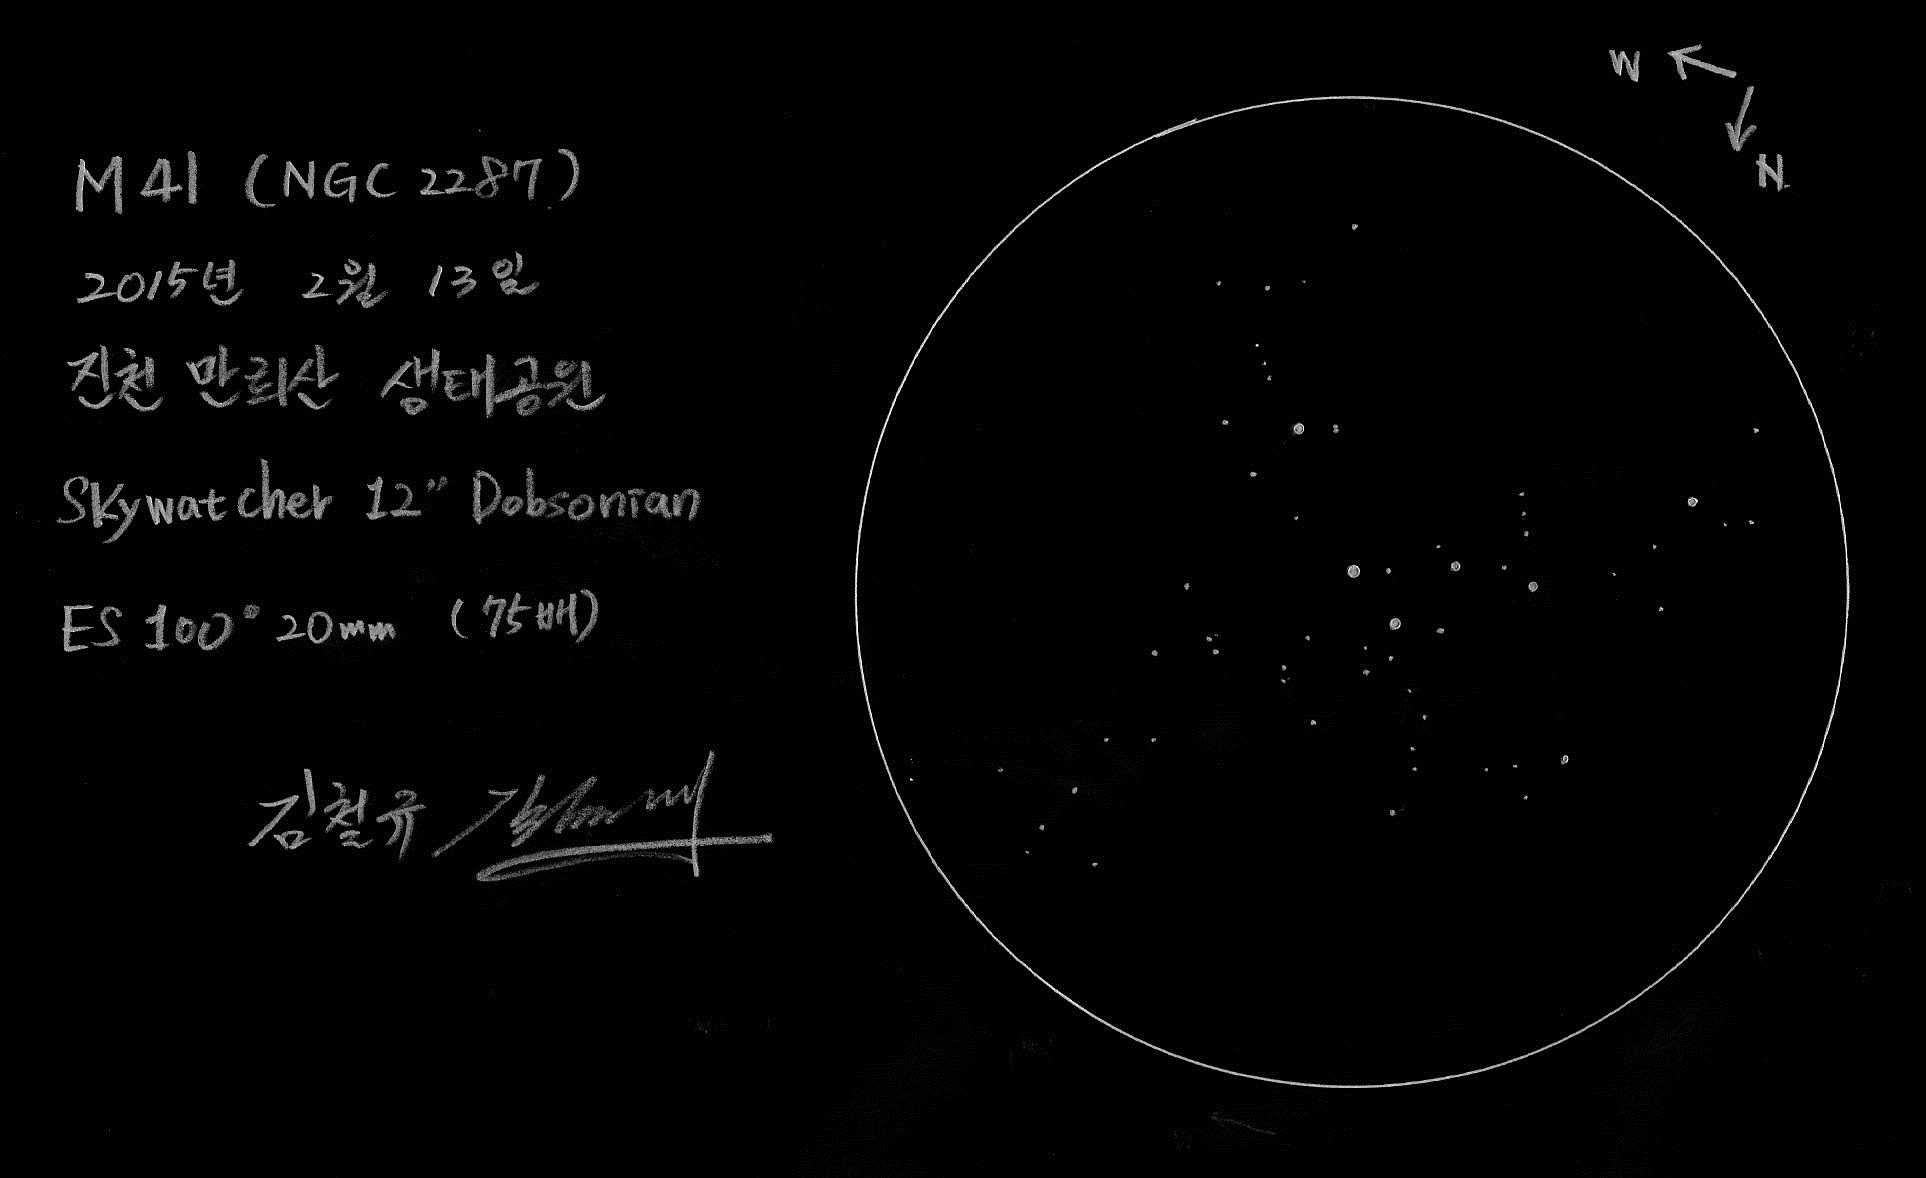 M41 (NGC 2287)
2015년 2월 13일
진천 만뢰산 생태공원
Skywatcher 12" Dobsonian
ES 100° 20mm (75배)
김철규
W
N